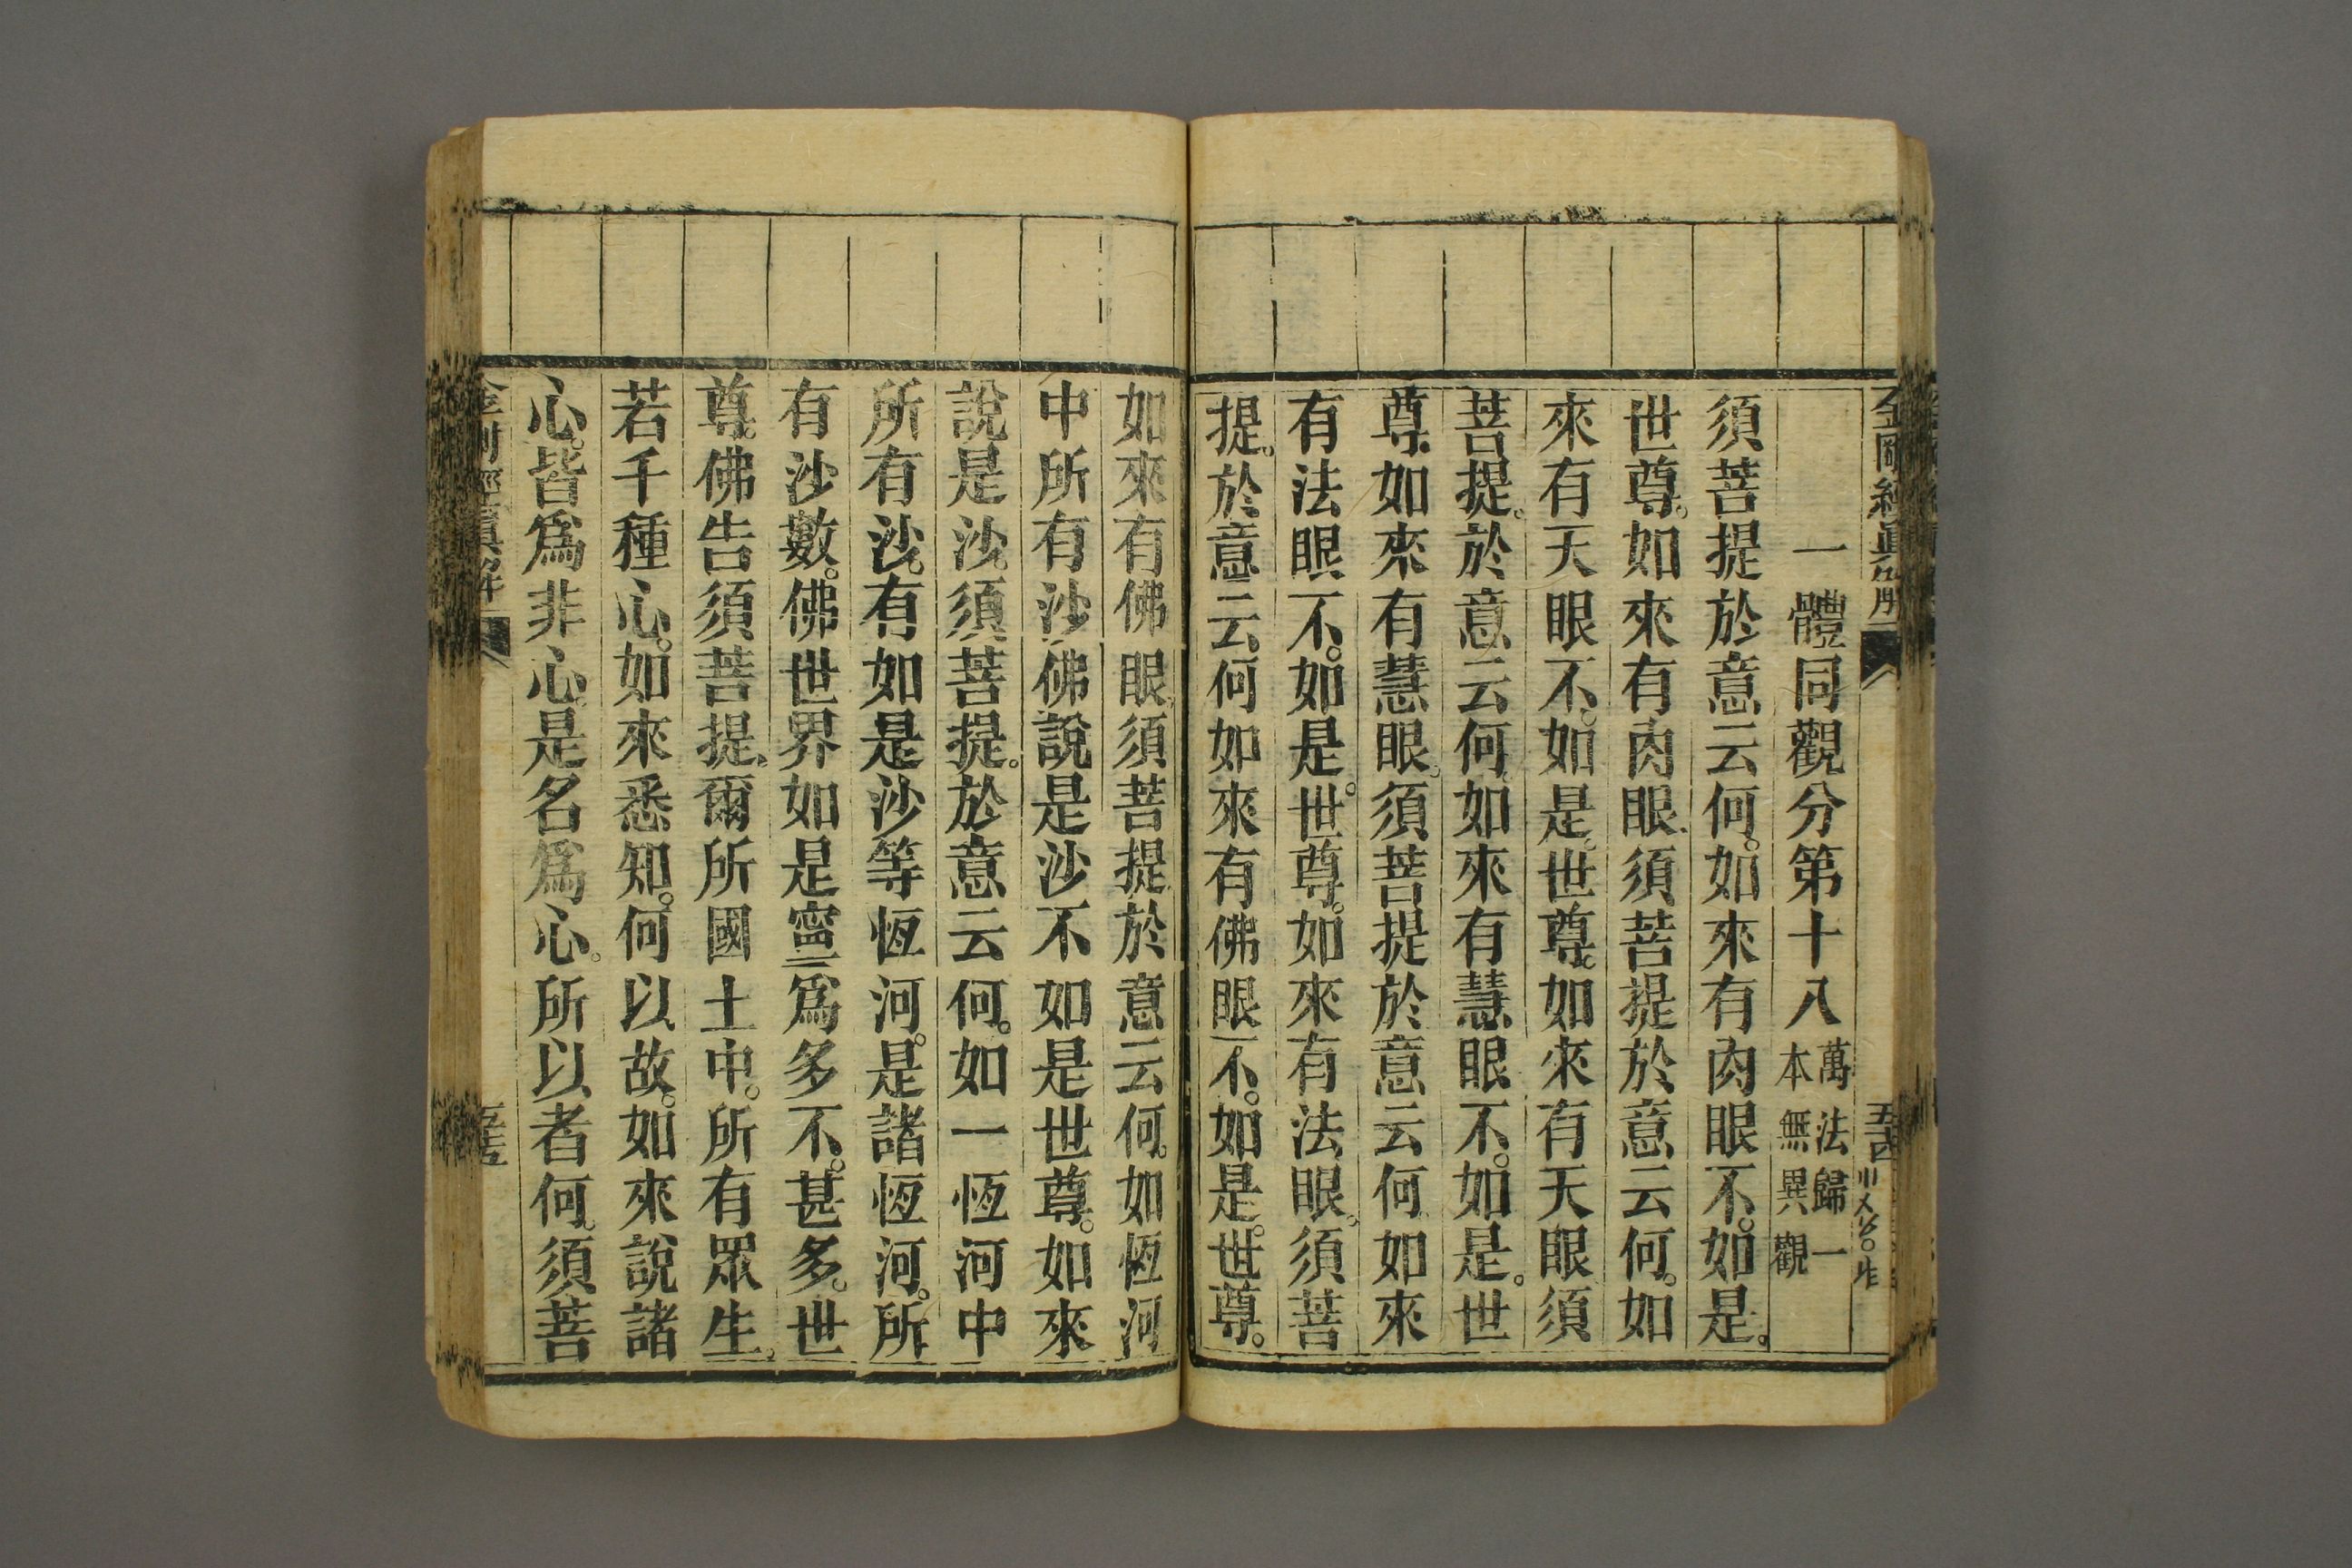 金剛經眞解
一體同觀分第十八
萬法歸一
本無異觀
須菩提於意云何。如來有肉眼不。如是。
世尊。如來有肉眼。須菩提於意云何。如
來有天眼不。如是。世尊。如來有天眼須
菩提。於意云何。如來有慧眼不。如是。世
尊。如來有慧眼。須菩提於意云何如來
有法眼不。如是。世尊。如來有法眼。須菩
提。於意云何如來有佛眼不。如是。世尊。
如來有佛眼。須菩提於意云何。如恆河
中所有沙。佛說是沙不如是世尊。如來
說是沙。須菩提。於意云何。如一恆河中
所有沙。有如是沙等恆河。是諸恆河。所
有沙數。佛世界如是寧爲多不。甚多。世
尊。佛告須菩提。爾所國土中。所有眾生。
若干種心。如來悉知。何以故。如來說諸
心。皆爲非心。是名爲心。所以者何。須菩
金剛經眞解